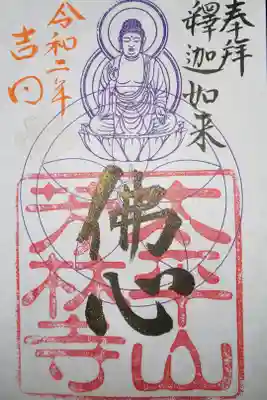 奉拜
釋迦如来
佛心
令和二年
吉日
太平山
芳林寺